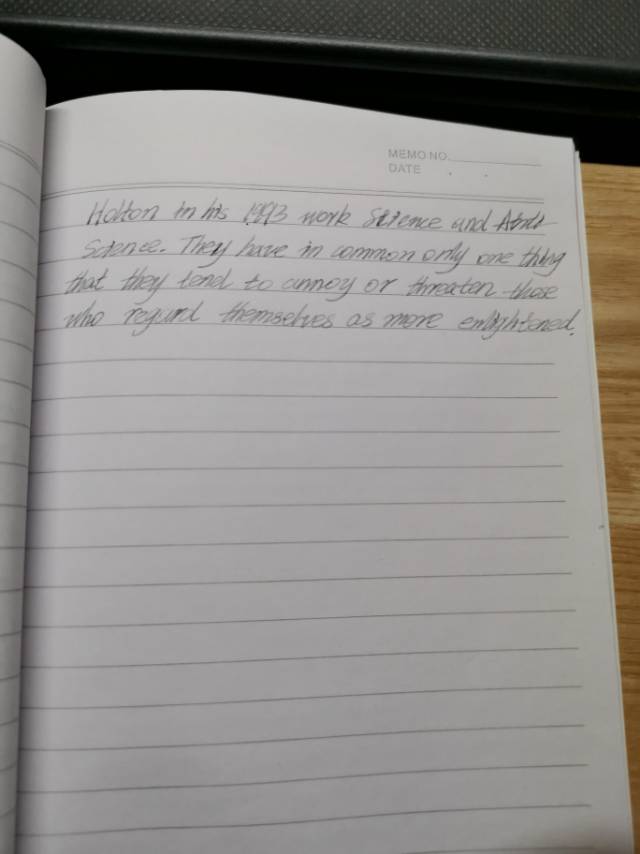 MEMO NO.
DATE
Holton in his 1993 work Science and Anti
Science. They have in common only one thing
that they tend to annoy or threaten those
who regard themselves as more enlightened.